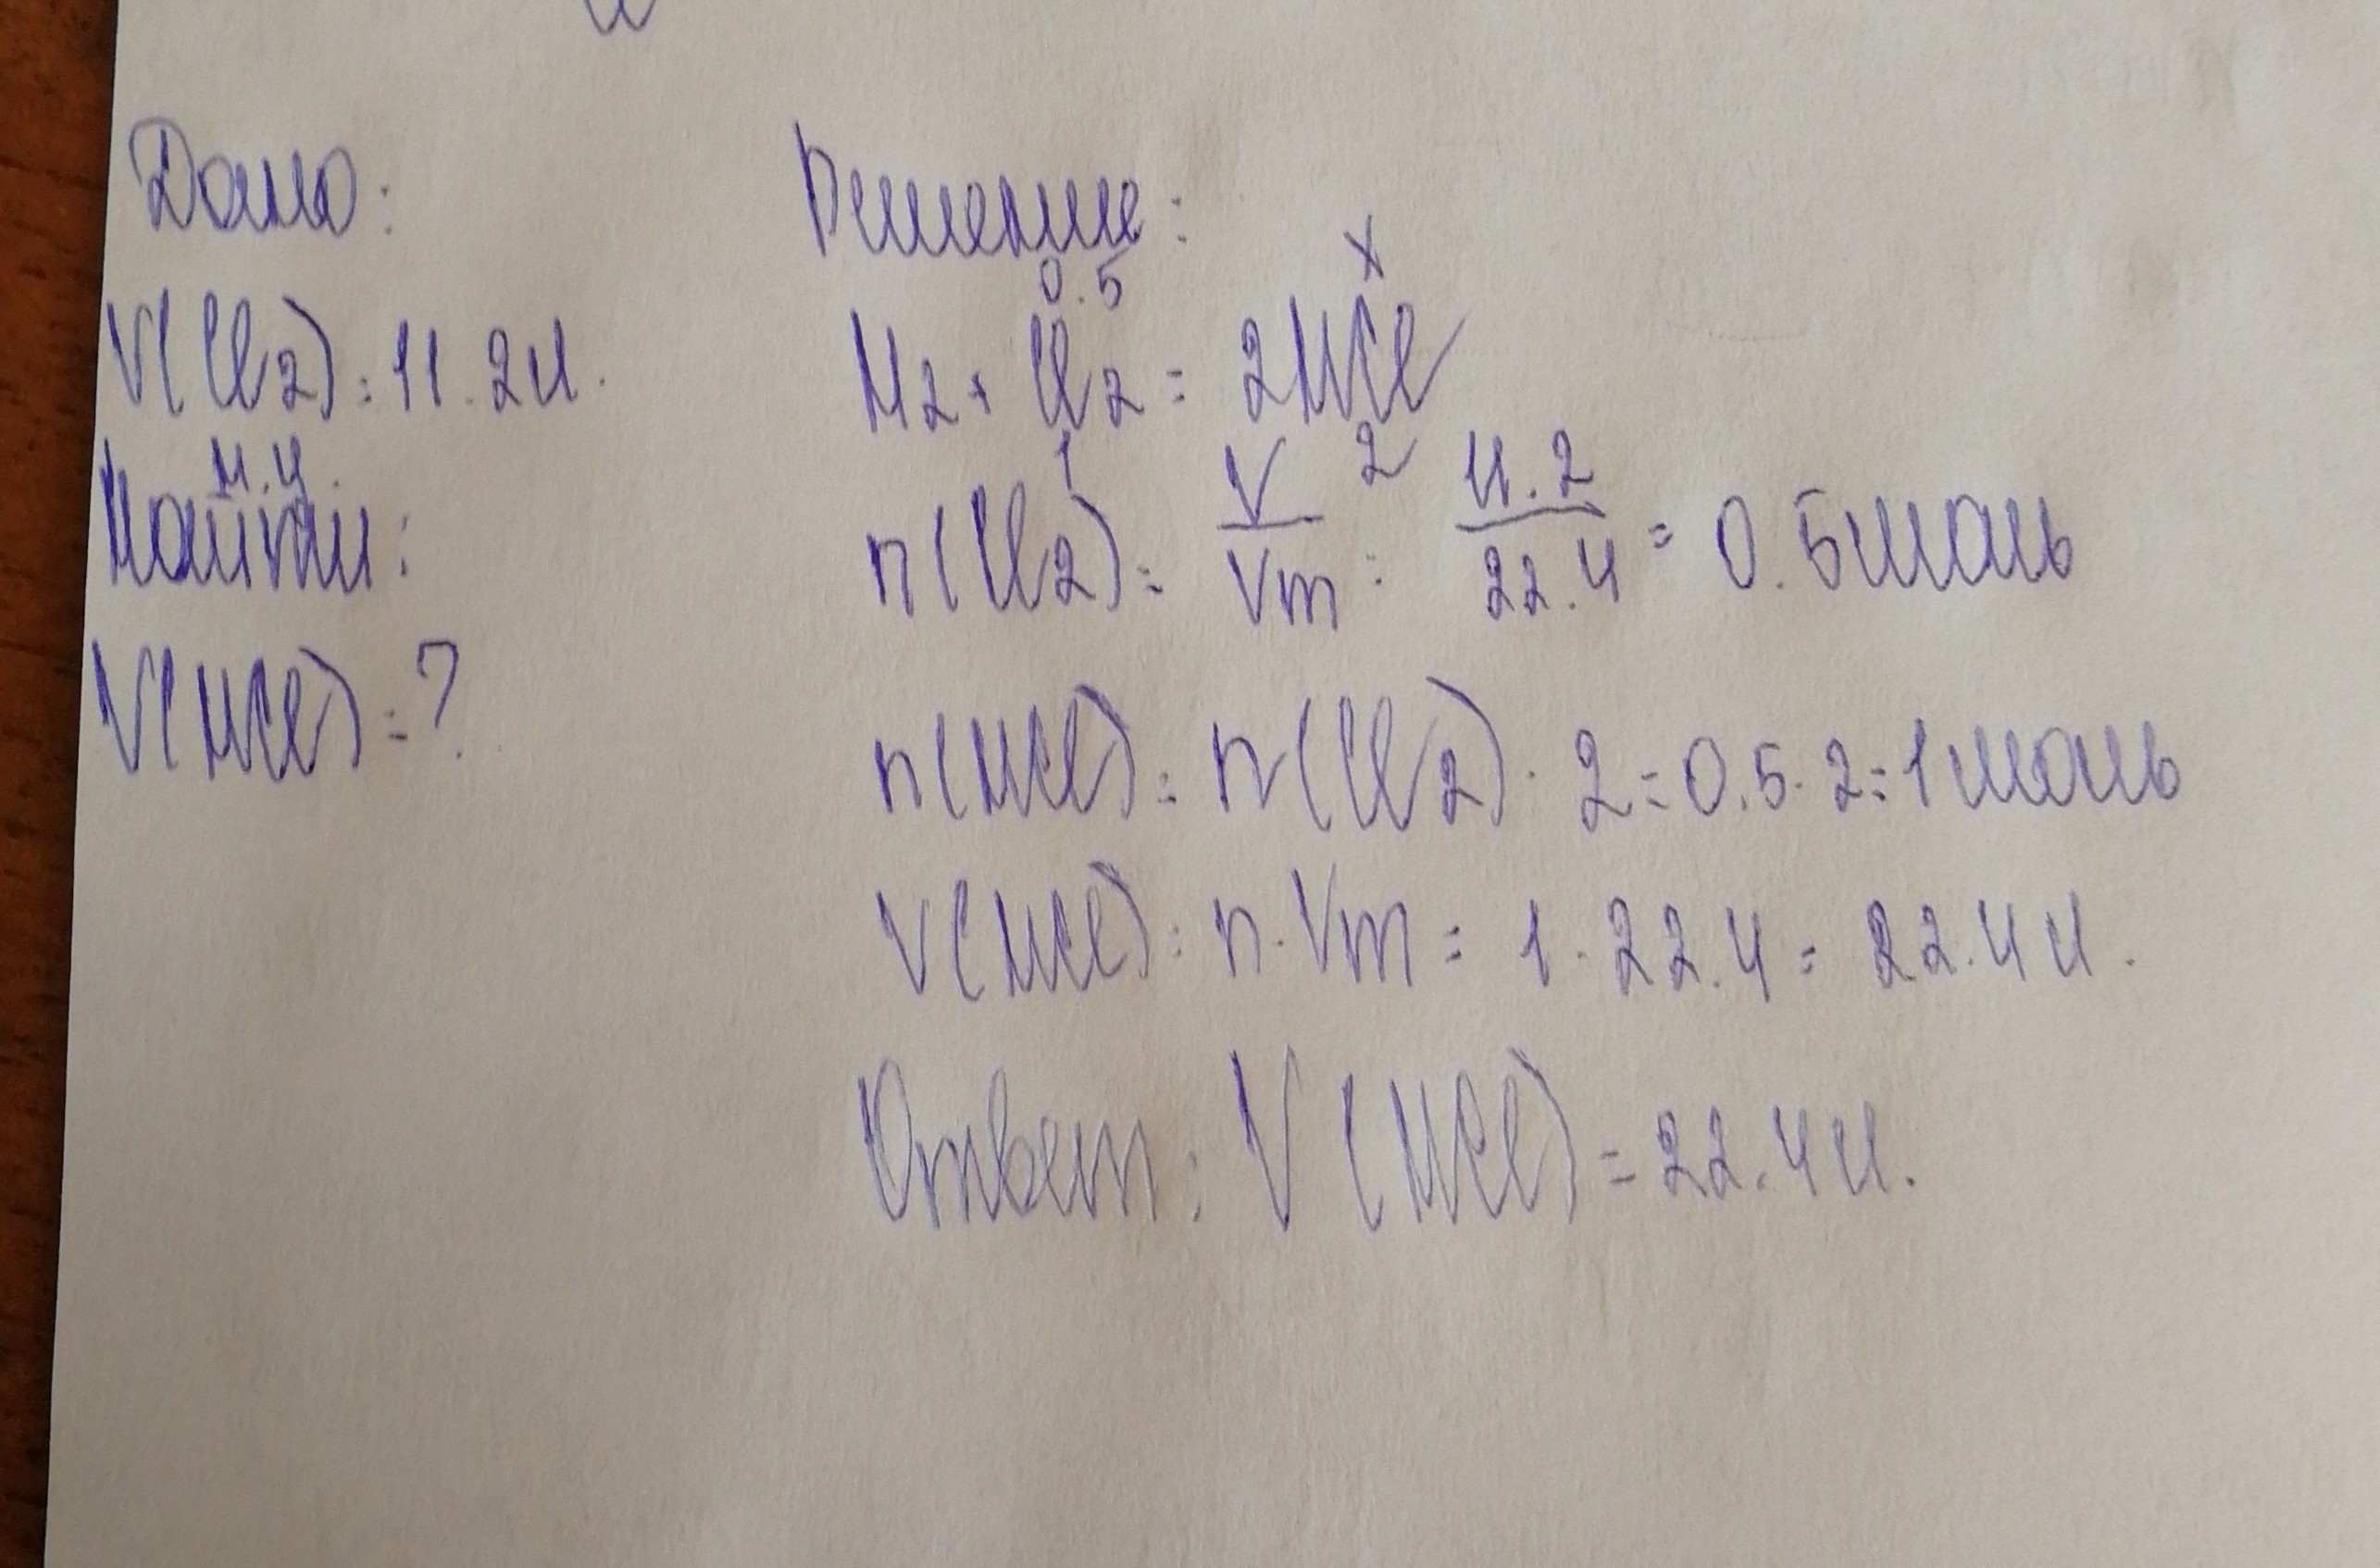 Дано:
V(Cl2)=11.2л.
н.у.
Найти:
V(HCl)=?
Решение:
0.5 x
H2+Cl2=2HCl
1 2
n(Cl2)= V/Vm = 11.2/22.4 = 0.5моль
n(HCl)=n(Cl2)·2=0.5·2=1моль
V(HCl)=n·Vm=1·22.4=22.4л.
Ответ: V(HCl)=22.4л.